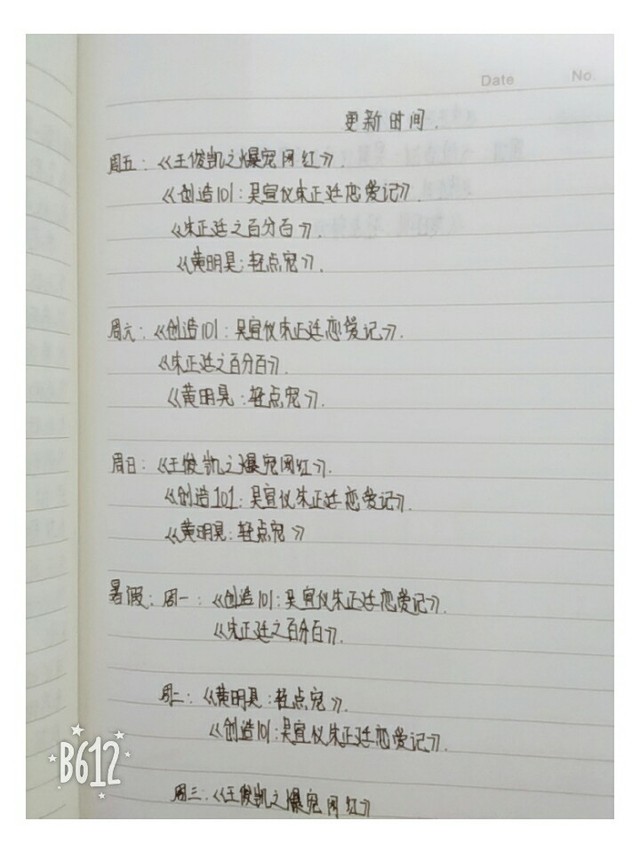 Date No
更新时间.
周五:《王俊凯之爆宠网红》.
《创造101:吴宣仪朱正廷恋爱记》.
《朱正廷之百分百》.
《黄明昊:轻点宠》.
周六:《创造101:吴宣仪朱正廷恋爱记》.
《朱正廷之百分百》.
《黄明昊:轻点宠》.
周日:《王俊凯之爆宠网红》.
《创造101:吴宣仪朱正廷恋爱记》.
《黄明昊:轻点宠》
暑假:周一:《创造101:吴宣仪朱正廷恋爱记》.
《朱正廷之百分百》.
周二:《黄明昊:轻点宠》.
《创造101:吴宣仪朱正廷恋爱记》.
周三:《王俊凯之爆宠网红》
B612